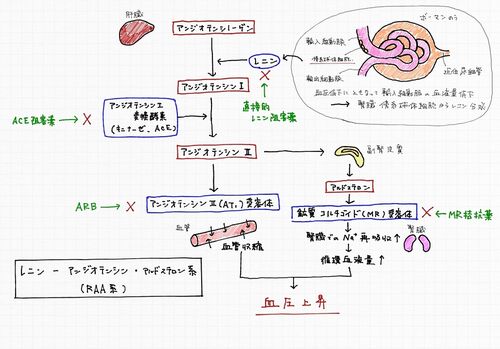 肝臓
アンジオテンシノーゲン
レニン
直接的
レニン阻害薬
ボーマンのう
輸入細動脈
傍糸球体細胞
輸出細動脈
近位尿細管
血圧低下にともなって輸入細動脈の血流量低下
→ 腎臓 傍系球体細胞からレニン分泌
アンジオテンシンⅠ
アンジオテンシンⅠ
変換酵素
(キニナーゼ、ACE)
ACE阻害薬
アンジオテンシンⅡ
副腎皮質
アルドステロン
ARB
アンジオテンシンⅡ(AT₁)受容体
鉱質コルチコイド(MR)受容体
MR拮抗薬
血管
血管収縮
腎臓でのNa⁺再吸収↑
腎臓
循環血液量↑
血圧上昇
レニン - アンジオテンシン・アルドステロン系
(RAA系)